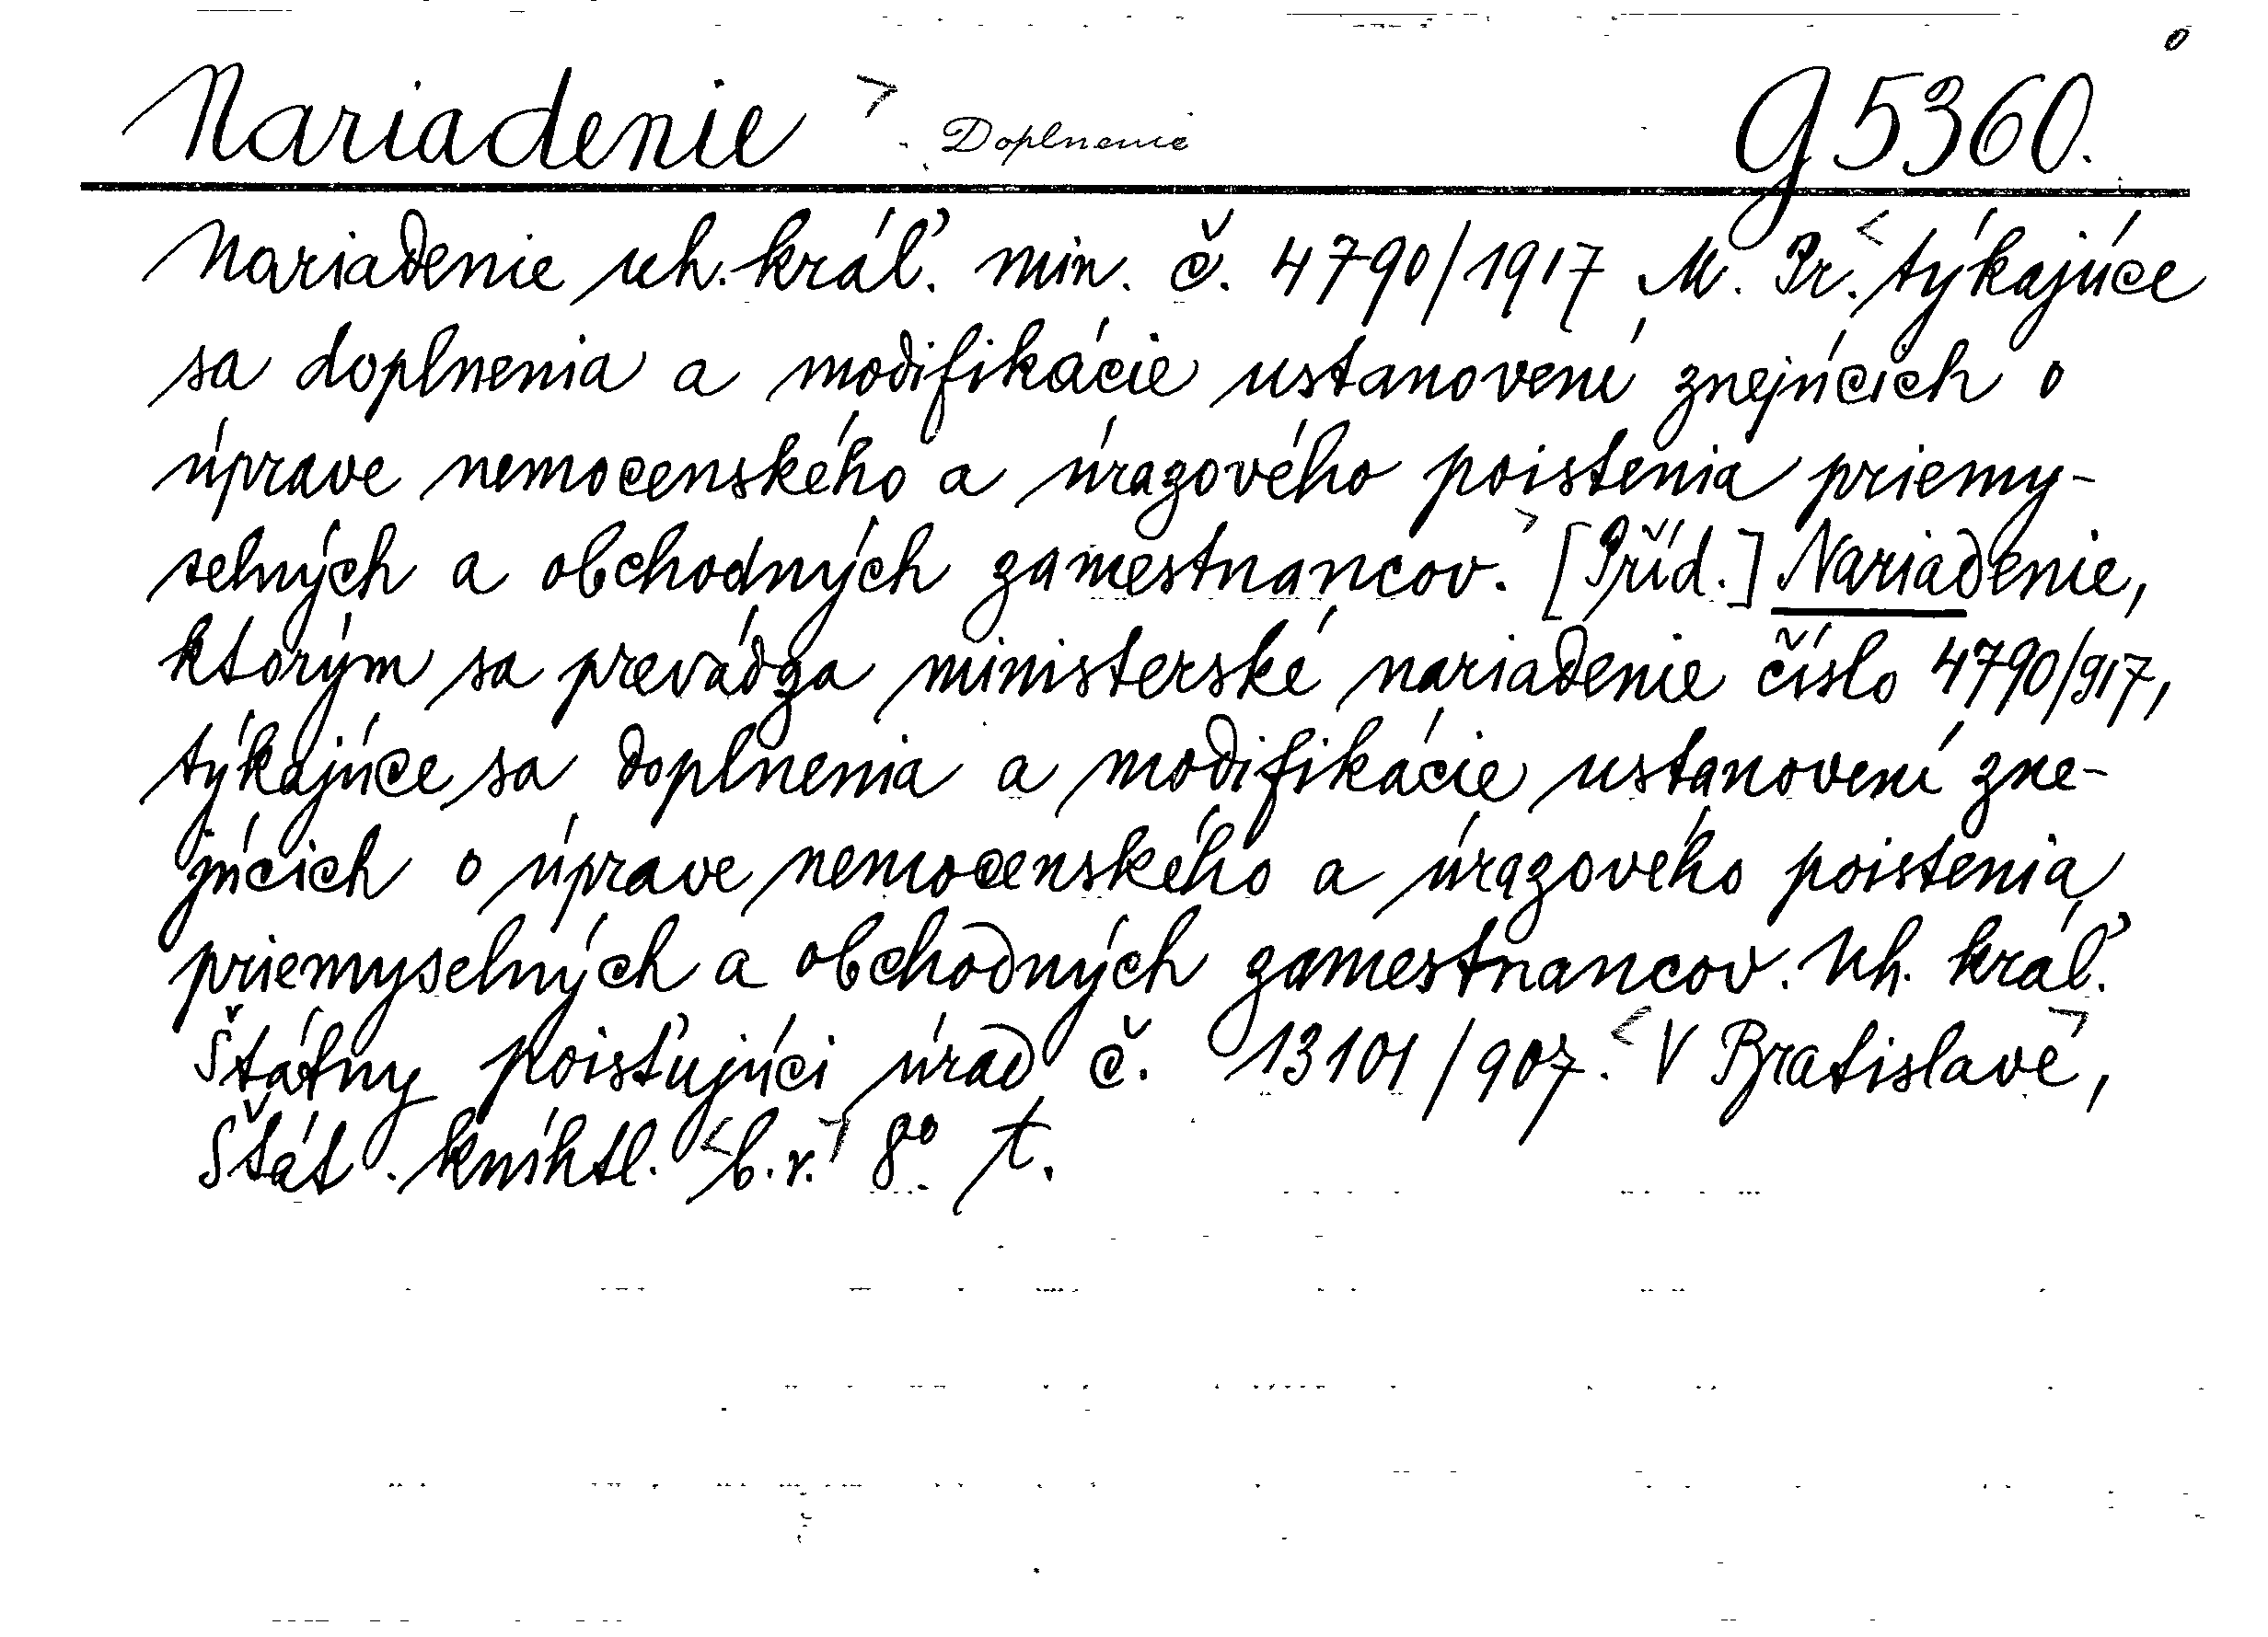 Nariadenie > Doplnenie G 5360.
Nariadenie uh. kráľ. min. č. 4790/1917 M. Pr.< týkajúce
sa doplnenia a modifikácie ustanovení znejúcich o
úprave nemocenského a úrazového poistenia priemy-
selných a obchodných zamestnancov.> [Příd.] Nariadenie,
ktorým sa prevádza ministerské nariadenie číslo 4790/917,
týkajúce sa doplnenia a modifikácie ustanovení zne-
júcich o úprave nemocenského a úrazového poistenia
priemyselných a obchodných zamestnancov. Uh. kráľ.
Štátny poisťujúci úrad č. 13101/907.< V Bratislave>,
Štát. kníhtl. <b.r.> 8° t.